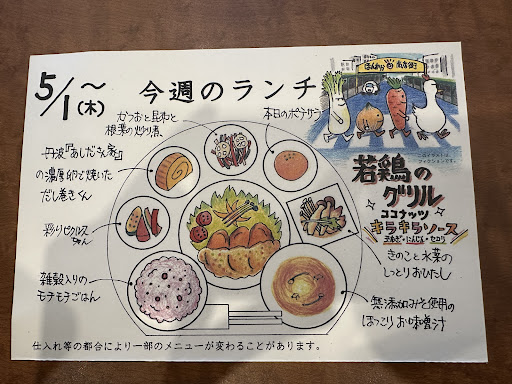 5/1〜(木)
今週のランチ
かつおと昆布と
根菜の炒り煮
本日のポテサラ
丹波『あしださん家』
の濃厚卵で焼いた
だし巻きくん
彩りピクルスちゃん
雑穀入りの
モチモチごはん
商店街
このイラストはフィクションです。
若鶏の
グリル
ココナッツ
キラキラソース
玉ねぎ・にんじん・セロリ
きのこと水菜の
しっとりおひたし
無添加みそ使用の
ほっこりお味噌汁
仕入れ等の都合により一部のメニューが変わることがあります。